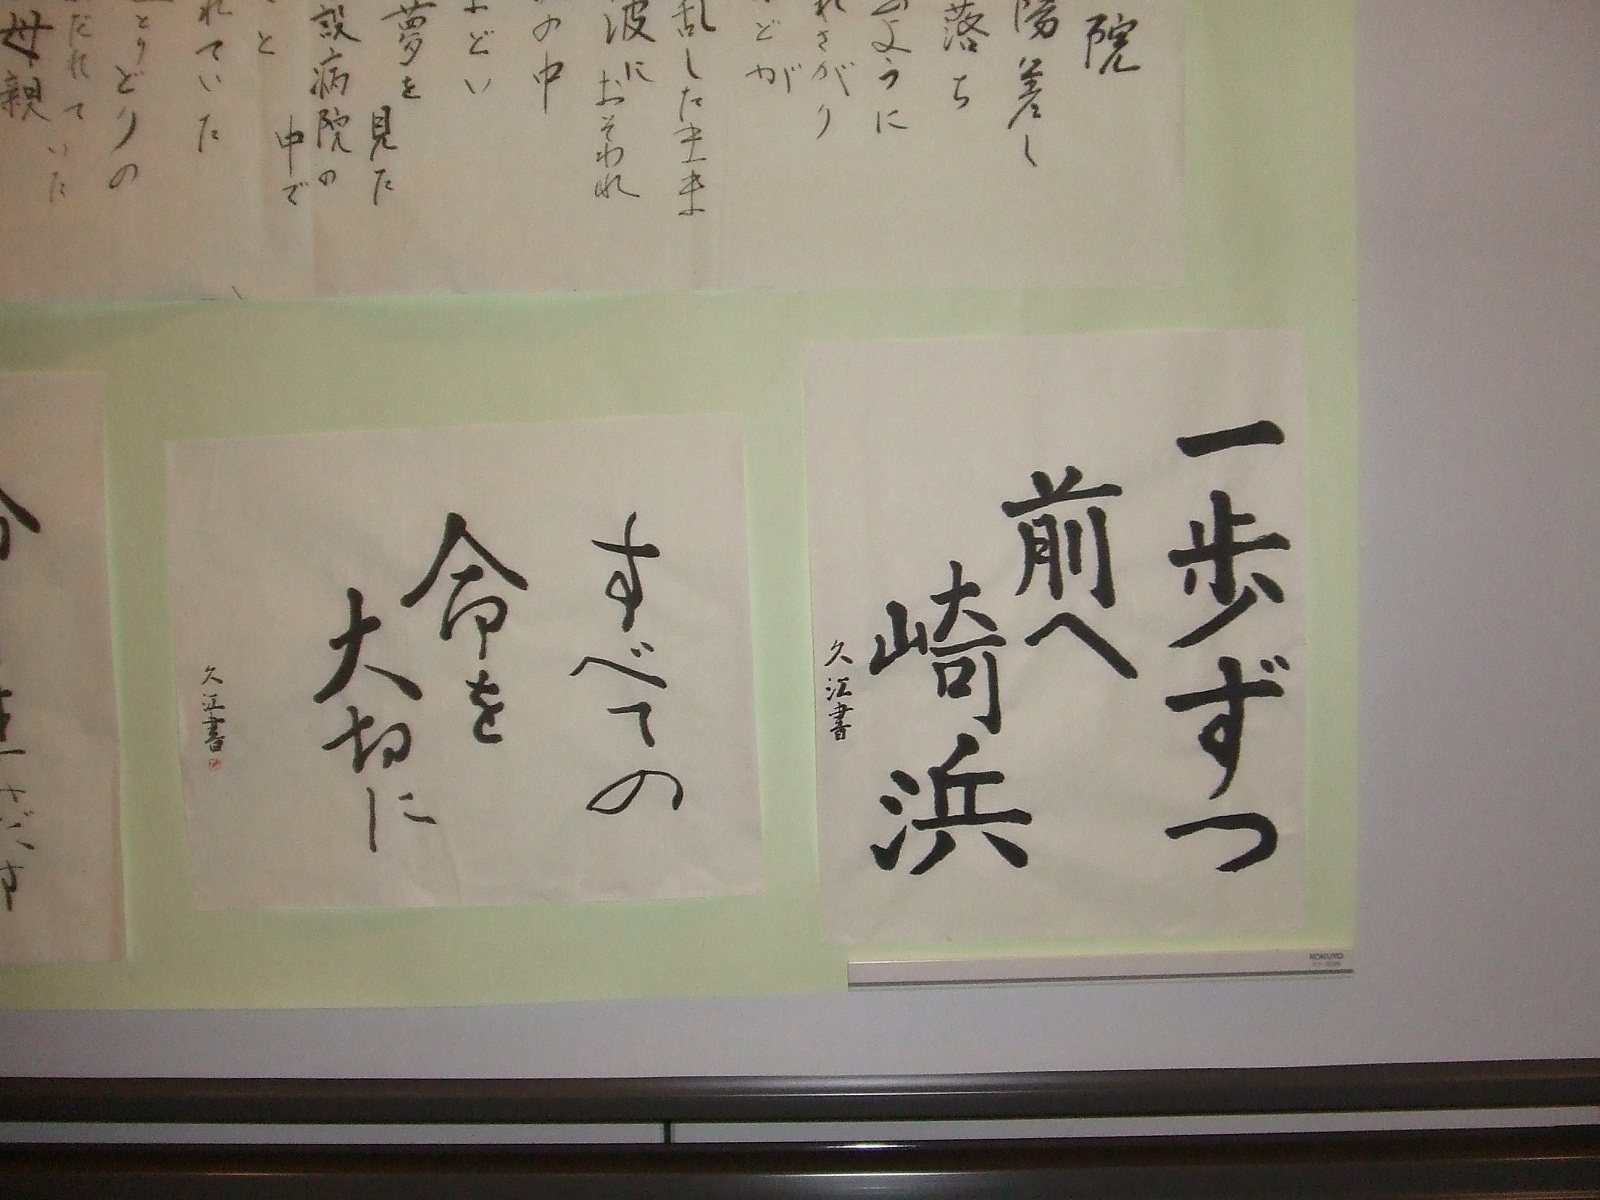 院
陽差し
落ち
ように
れさがり
どが
乱したまま
波に
おそわれ
の中
どい
夢を
見た
設病院の
中で
と
れていた
とりどりの
だれて
いた
母親
一歩ずつ
前へ
崎浜
久江書
すべての
命を
大切に
久江書
KOKUYO